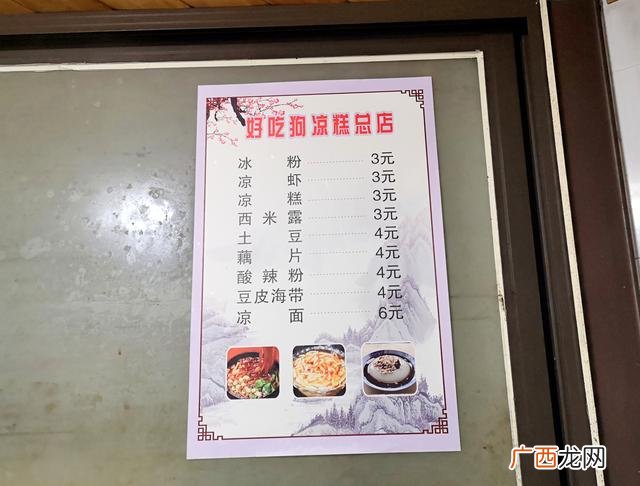 好吃狗凉糕总店
冰粉 3元
凉虾 3元
凉糕 3元
西米露 3元
土豆 4元
藕片 4元
酸辣粉 4元
豆皮海带 4元
凉面 6元
广西龙网